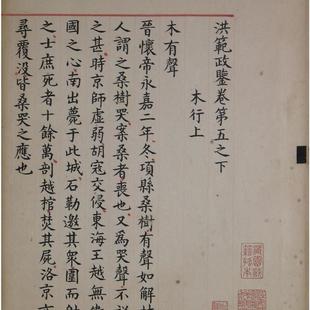 洪範政鑒卷第五之下
木行上
木有聲
晉懷帝永嘉二年冬項縣桑樹有聲如解材
人謂之桑樹哭案桑者喪也又為哭聲不祥
之甚時京師虛弱胡寇交侵東海王越無衛
國之心南出薨于此城石勒邀其眾圍而射
之士庶死者十餘萬剖越棺焚其屍洛京亦
尋覆沒皆桑哭之應也